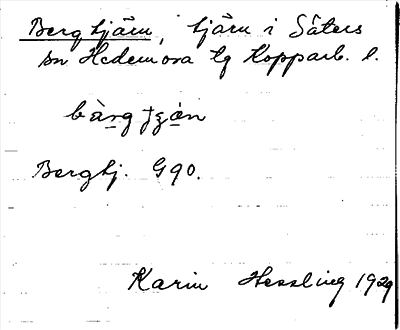 Bergtjärn, tjärn i Säters
sn Hedemora tg Kopparb. l.
Bergtj. G90.
Karin Hessling 1929